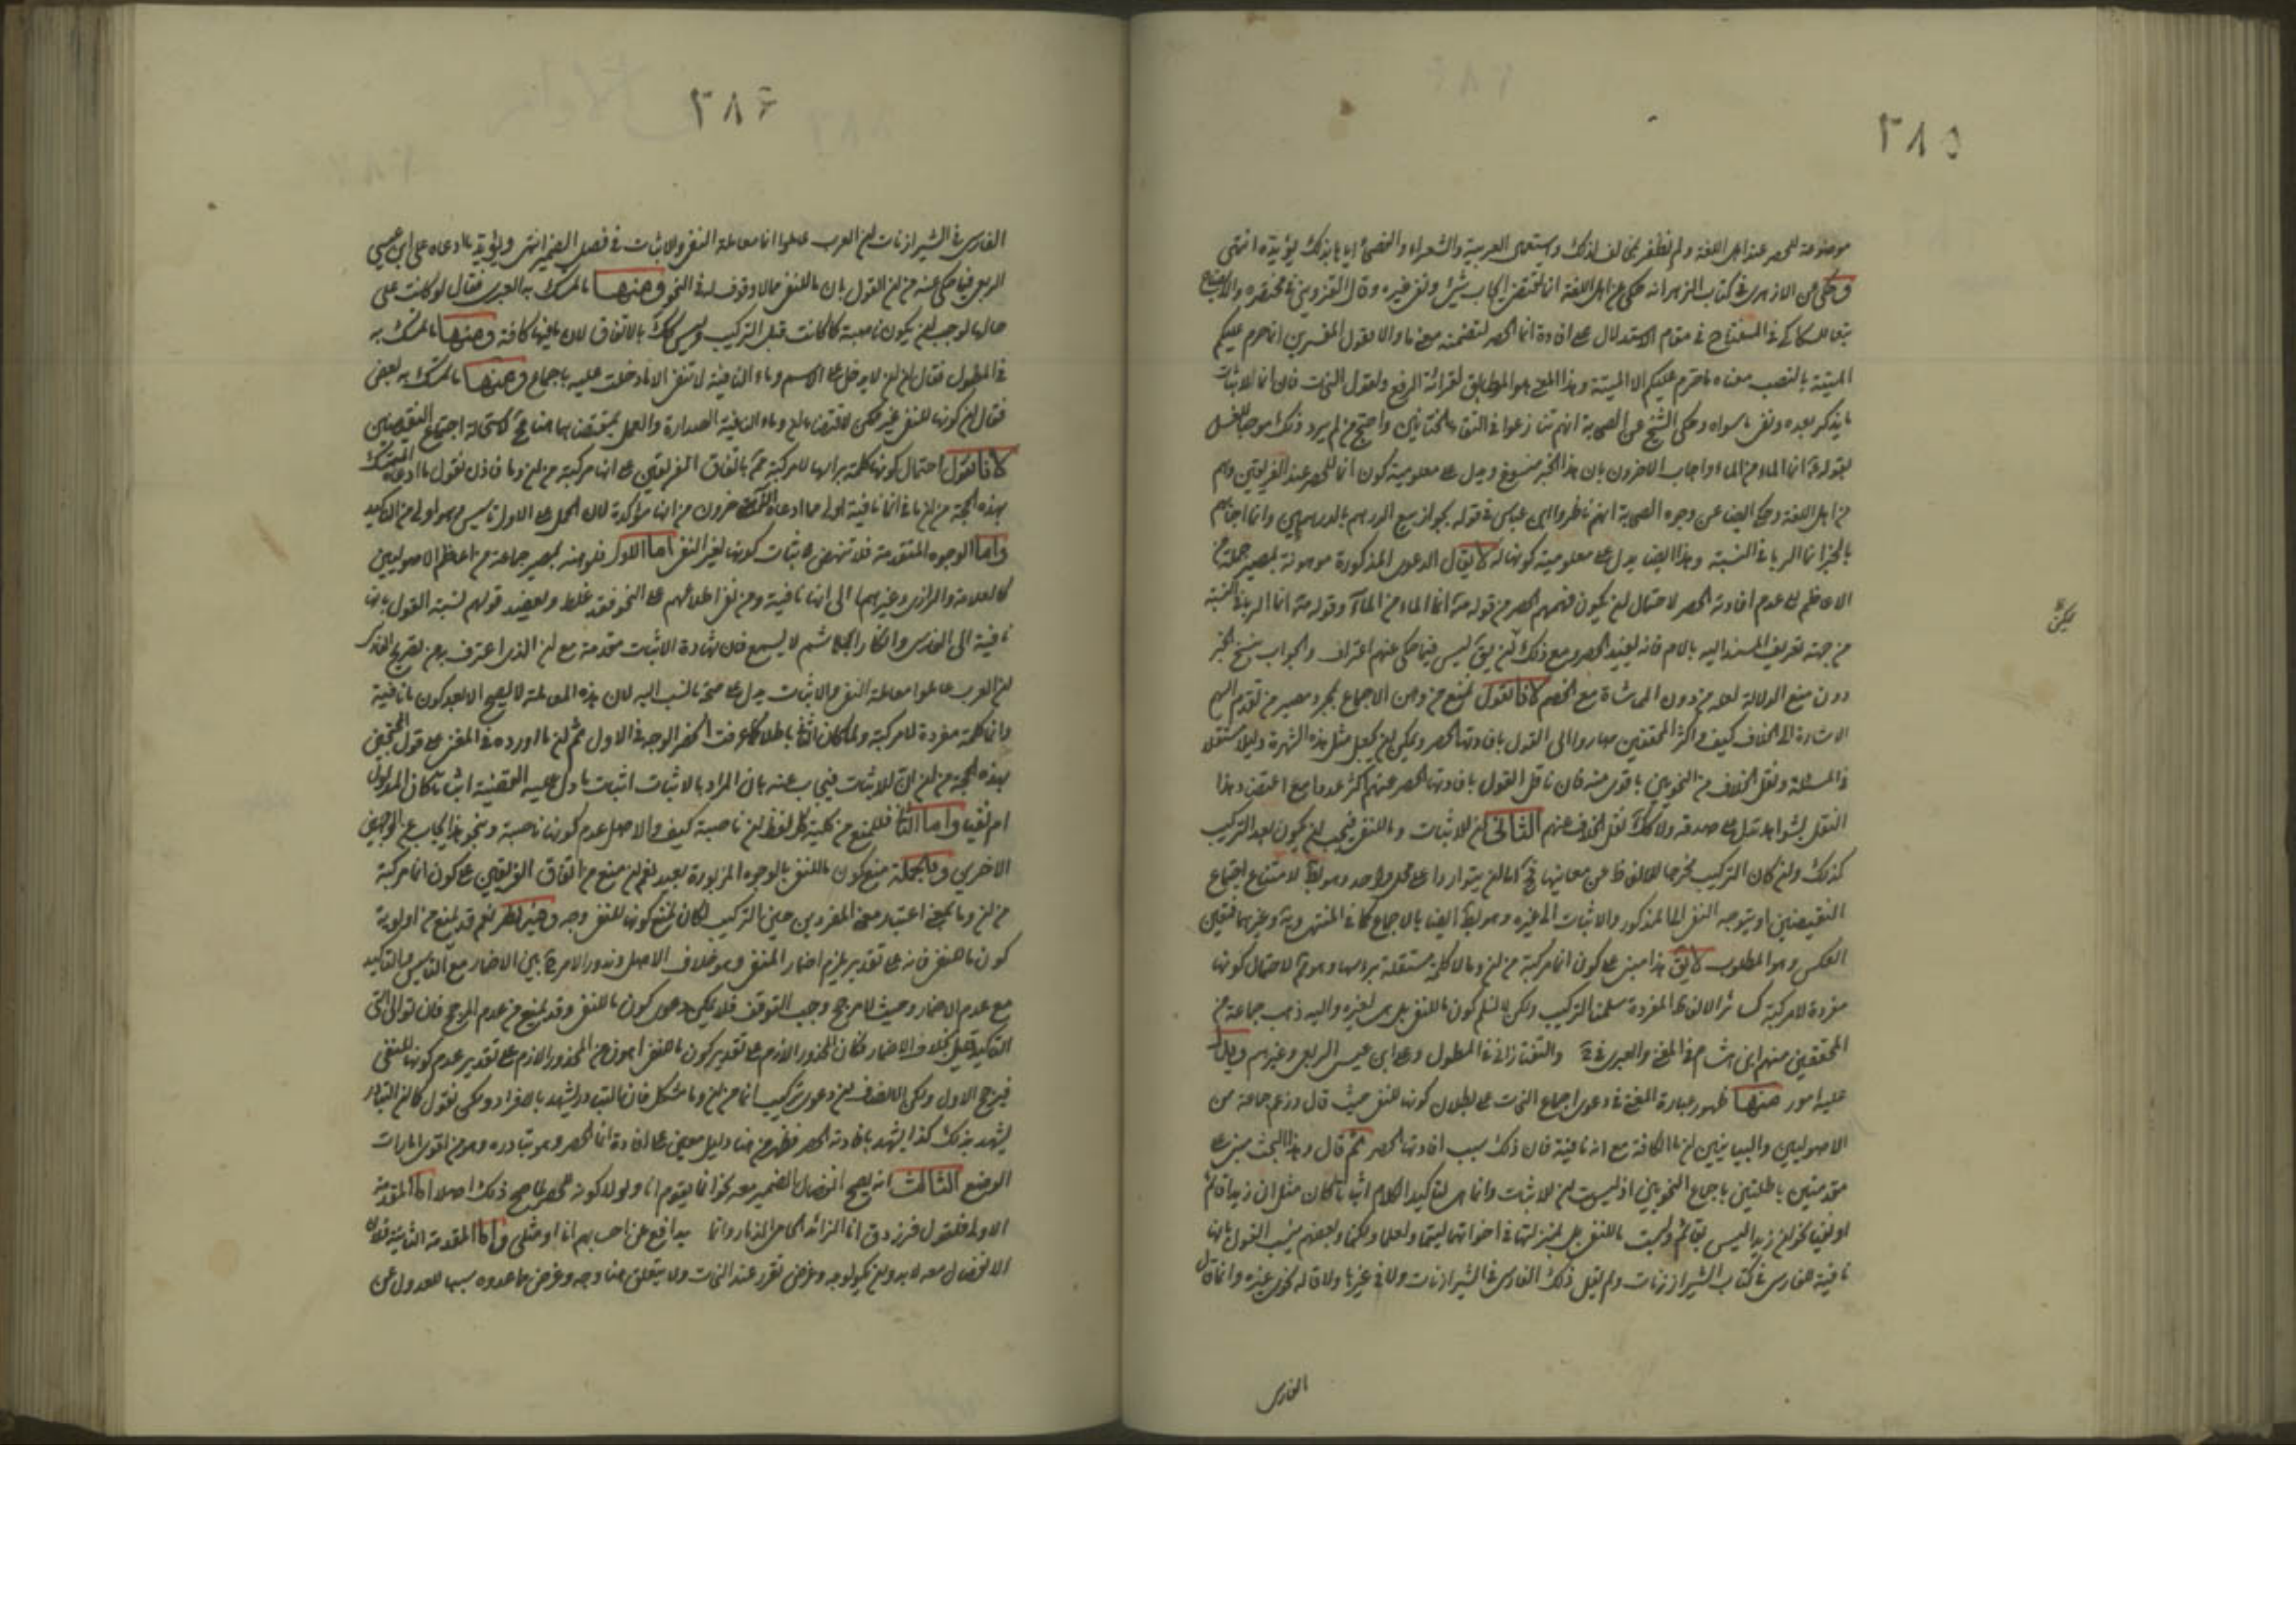 ٣٨٥
موضوعة للحصر عند اهل اللغة ولم نظفر بمخالف لذلك واستعمال العربية والشعراء والفصحاء اياها بذلك يؤيده انتهى
وحكى عن الازهرى فى كتاب الزاهر انه حكى عن اهل اللغة ان انما تقتضى ايجاب شىء ونفى غيره وقال القزوينى فى مختصره والايضاح
تبعا للسكاكى فى المفتاح فى مقام الاستدلال على افادة انما الحصر لتضمنه معنى ما والا لقول المفسرين انما حرم عليكم
الميتة بالنصب معناه ما حرم عليكم الا الميتة وهذا المعنى هو المطابق لقرائة الرفع ولقول النحاة فان انما لاثبات
ما يذكر بعده ونفى ما سواه وحكى الشيخ عن الصحابة انهم تنازعوا فى التقاء الختانين واحتج من لم ير ذلك موجبا للغسل
بقوله ع انما الماء من الماء واجاب الاخرون بان هذا الخبر منسوخ ويدل على معلومية كون انما للحصر عند الفريقين وهم
من اهل اللغة وحكى ايضا عن وجوه الصحابة انهم ناظروا ابن عباس فى قوله بجواز بيع الدرهم بالدرهمين وانما اجابهم
بالخبر انما الربا فى النسية وهذا ايضا يدل على معلومية كونها له لا يقال الدعوى المذكورة موهونة بمصير جملة من
الاعاظم الى عدم افادته الحصر لاحتمال ان يكون فهمهم الحصر من قوله ع انما الماء من الماء وقوله ع انما الربا فى النسية
من جهة تعريف المسند اليه باللام فانه يفيد الحصر ومع ذلك لم يق ليس فيما حكى عنهم اعتراف والجواب بنسخ الخبر
دون منع الدلالة لعله من دون المماشاة مع الخصم لانا نقول نمنع من وهن الاجماع بمجرد مصير من تقدم اليهم
الاشارة الى الخلاف كيف واكثر المحققين صاروا الى القول بافادتها الحصر ويمكن ان يجعل مثل هذه الشهرة دليلا مستقلا
فى المسئلة ونقل الخلاف من النحويين باقوى منه فان ناقل القول بافادتها الحصر عنهم اكثر عددا مع اعتضد هذا
النقل بشواهد تدل على صدقه ولا كك نقل الخلاف عنهم الثانى ان للاثبات وما للنفى فيجب ان يكون بعد التركيب
كذلك وان كان التركيب مخرجا للالفاظ عن معانيها فح اما ان يتواردا على محل واحد وهو بط لامتناع اجتماع
النقيضين او يتوجه النفى الى المذكور والاثبات الى غيره وهو بط ايضا بالاجماع كما فى المنتهى وية وغيرهما فتعين
العكس وهو المطلوب لا يق هذا مبنى على كون انما مركبة من ان وما لا كلمة مستقلة براسها وهو مم لاحتمال كونها
مفردة لا مركبة كسائر الالفاظ المفردة سلمنا التركيب ولكن لا نسلم كون ما للنفى بل هى لغيره واليه ذهب جماعة من
المحققين منهم ابن هشام فى المغنى والعبرى فى والتفتازانى فى المطول وعلى ابن عيسى الربعى وغيرهم ويدل
عليه امور منها ظهور عبارة المغنى فى دعوى اجماع النحاة على بطلان كونها للنفى حيث قال وزعم جماعة من
الاصوليين والبيانيين ان ما الكافة مع ان نافية فان ذلك سبب افادتها الحصر ثم قال وهذا البحث مبنى على
مقدمتين باطلتين باجماع النحويين اذ ليست ان للاثبات وانما هى لتاكيد الكلام اثباتا كان مثل ان زيدا قائم
او نفيا نحو ان زيدا ليس بقائم وليست ما للنفى بل بمنزلتها فى اخواتها ليتما ولعلما ولكنما وبعضهم ينسب القول بانها
نافية للفارسى فى كتاب الشيرازيات ولم يقل ذلك الفارسى فى الشيرازيات ولا فى غيرها ولا قاله نحوى غيره وانما قال
الفارسى
٣٨٦
الفارسى فى الشيرازيات ان العرب عاملوا انما معاملة النفى والا ثبات فى فصل الضمير انتهى ويؤيد ما ادعاه على ابن عيسى
الربعى فيما حكى عنه من ان القول بان ما للنفى مما لا وقوف له فى النحو ومنها ما تمسك به العبرى فقال لو كانت على
حالها لوجب ان يكون ناصبة كما كانت قبل التركيب وليس كك بالاتفاق لان ما فيها كافة ومنها ما تمسك به
فى المطول فقال ان ان لا يدخل على الاسم وما النافية لا تنفى الا ما دخلت عليه باجماع ومنها ما تمسك به بعض
فقال ان كونها للنفى غير ممكن لاقتضاء ان وما النافية الصدارة والعمل بمقتضاهما هنا مح لاستحالة اجتماع النقيضين
لانا نقول احتمال كونها كلمة براسها لا مركبة مم باتفاق الفريقين على انها مركبة من ان وما فاذن نقول ما ادعاه المتمسك
بهذه الحجة من ان ما فى انما نافية اولى مما ادعاه الاخرون من انها مؤكدة لان الحمل على الاول تاسيس وهو اولى من التاكيد
واما الوجوه المتقدمة فلا تنهض لاثبات كونها لغير النفى اما الاول فلوهنه بمصير جماعة من اعاظم الاصوليين
كالعلامة والرازى وغيرهما الى انها نافية ومن نفى اطلاعهم على النحو فقد غلط ويعضد قولهم نسبة القول بانها
نافية الى الفارسى وانكار ابن هشام لا يسمع فان شهادة الاثبات مقدمة مع ان الذى اعترف به من تصريح الفارسى
ان العرب عاملوا معاملة النفى والا ثبات يدل على صحة ما نسب اليه لان هذه المعاملة لا يصح الا بعد كون ما نافية
وانما كلمة مفردة لا مركبة ولما كان الثانى باطلا كما عرفت انحصر الوجه فى الاول ثم ان ما اورده فى المغنى على قول المحتج
بهذه الحجة من ان ان للاثبات فيجاب عنه بان المراد بالاثبات اثبات ما دل عليه القضية اثباتا كان المدلول
ام نفيا واما الثانى فللمنع من كلية كل لفظ ان ناصبة كيف والاصل عدم كونها ناصبة وبنحو هذا يجاب عن الوجهين
الاخرين وبالجملة منع كون ما للنفى بالوجوه المزبورة بعيد نعم ان منع من اتفاق الفريقين على كون انما مركبة
من ان وما بمعنى اعتبار معنى المفردين حين التركيب لكان لمنع كونها للنفى وجه وفيه نظر نعم قد يمنع من اولوية
كون ما للنفى فانه على تقديره يلزم اضمار المنفى وهو خلاف الاصل ويدور الامر ح بين الاضمار مع التاسيس والتاكيد
مع عدم الاضمار وحيث لا مرجح وجب التوقف فلا يمكن دعوى كون ما للنفى وقد يمنع من عدم المرجح فان توالى التى
التاكيد قليل بخلاف الاضمار فكان المحذور اللازم على تقدير كون ما للنفى اهون من المحذور اللازم على تقدير عدم كونها للنفى
فيرجح الاول ولكن الانصاف ان دعوى تركيب انما من ان وما مشكل فان التبادر يشهد بالافراد ولكن نقول كما ان التبادر
يشهد بذلك كذا يشهد بافادته الحصر فظهر من هنا دليل معين على افادة انما الحصر وهو تبادره وهو من اقوى امارات
الوضع الثالث انه يصح انفصال الضمير معه نحو انما يقوم انا ولولا كونه للحصر لما صح ذلك اصلا اما المقدمة
الاولى فلقول فرزدق انا الزائد الحامى الذمار وانما يدافع عن احسابهم انا او مثلى واما المقدمة الثانية فلان
الانفصال معه لا بد وان يكون لوجه وغرض تقرر عند النحاة ولا يتعلق هنا وجه وغرض ما عدوه سببا للعدول عن